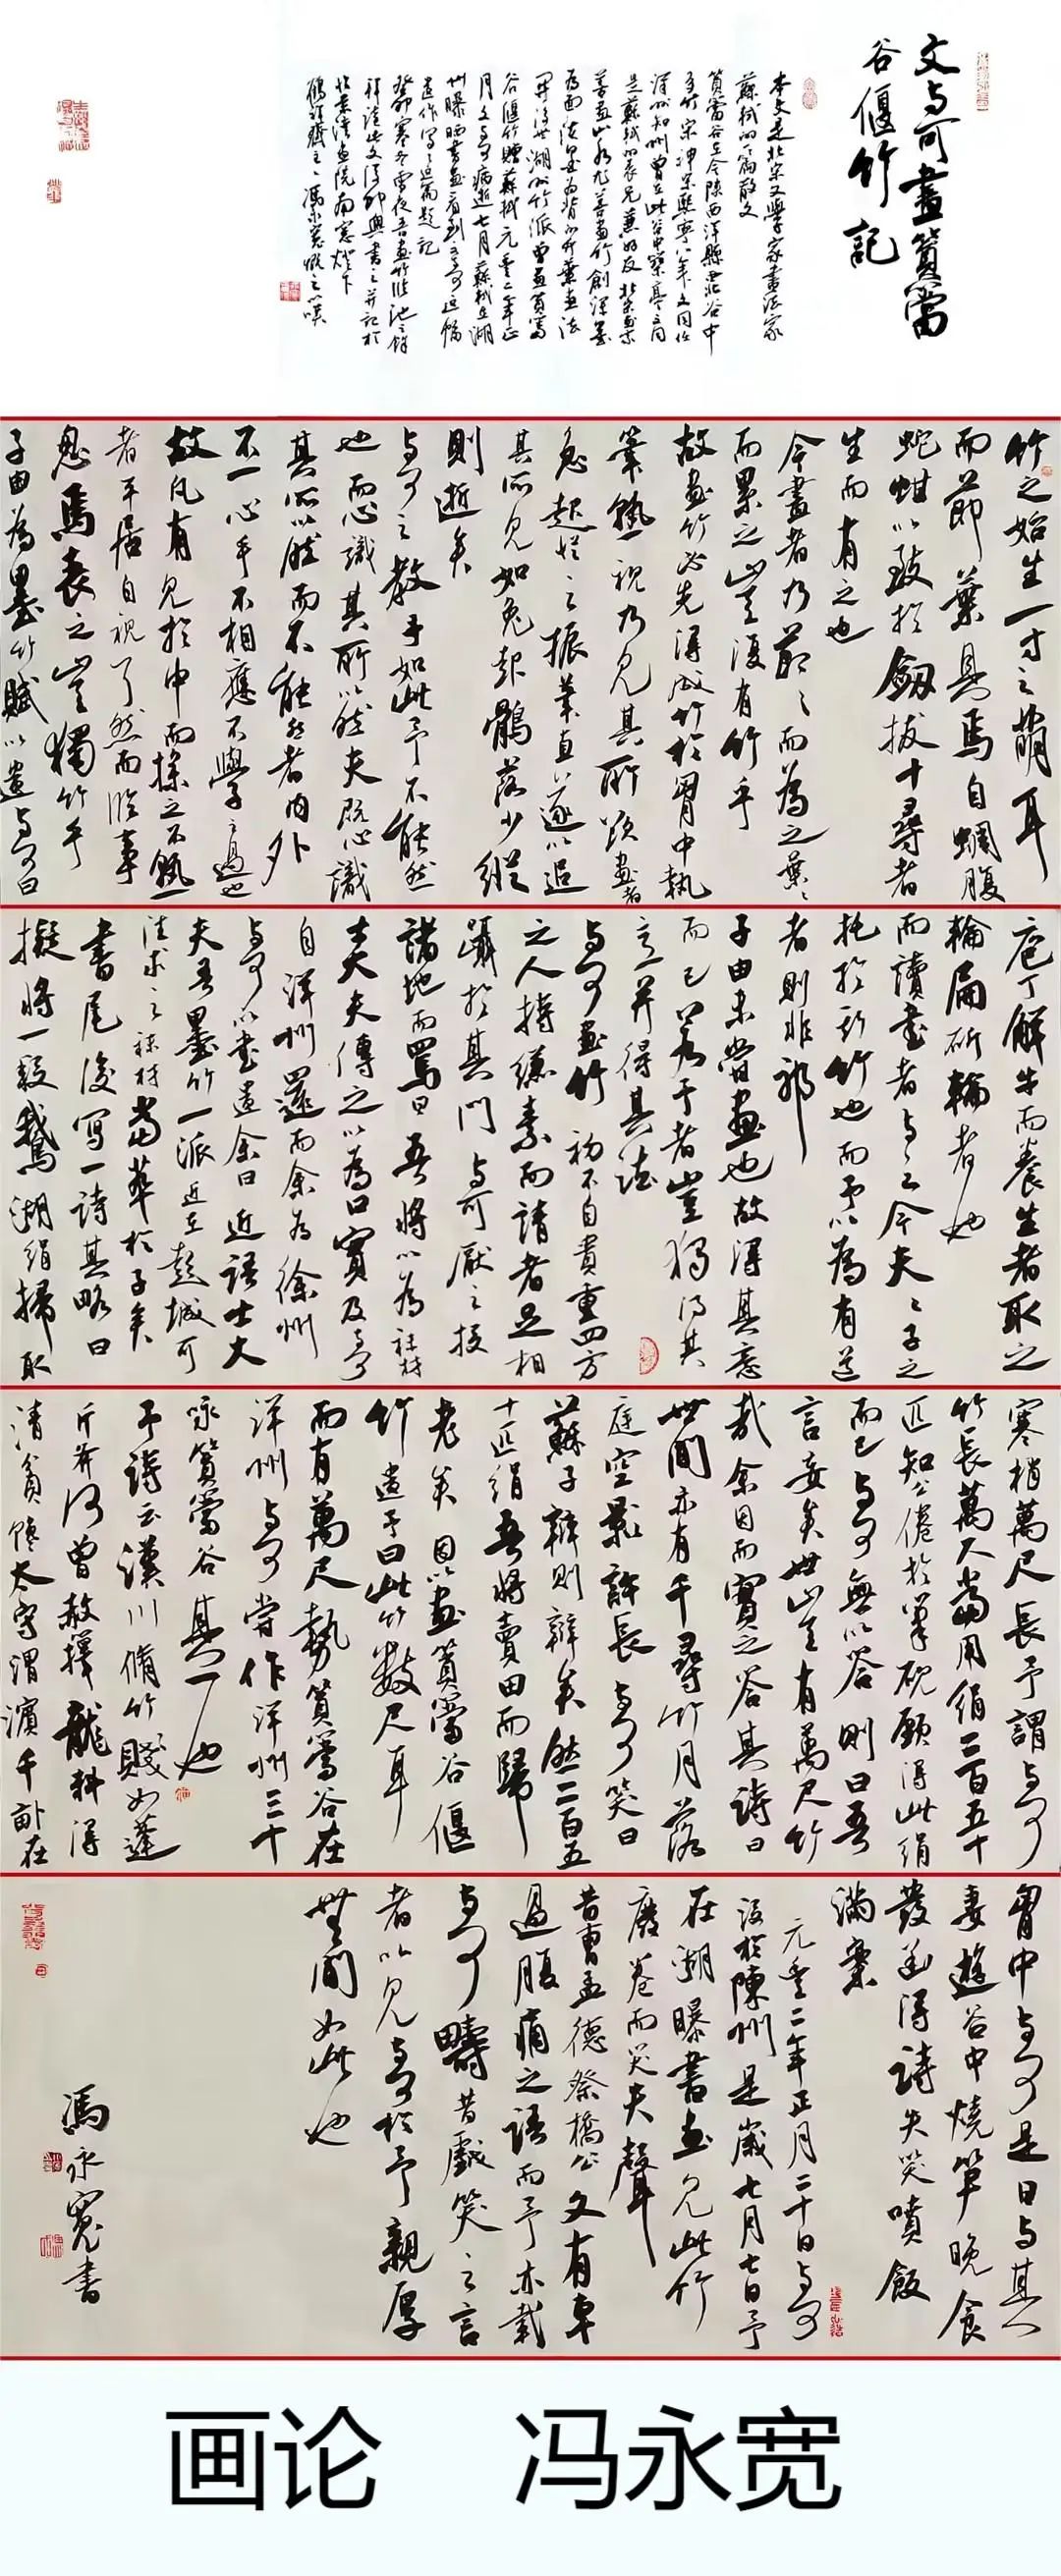 文与可畫篔簹
谷偃竹記
本文是北宋文學家書法家
蘇軾的一篇散文
篔簹谷在今陝西洋縣西北谷中
多竹宋神宗熙寧八年文同任
洋州知州曾在此谷中築亭文同
是蘇軾的表兄兼好友北宋畫家
善畫山水尤善畫竹創深墨
為面淡墨為背的竹葉畫法
開後世湖州竹派曾畫篔簹
谷偃竹贈蘇軾元豐二年正
月文与可病逝七月蘇軾在湖
州曝晒書畫看到与可這幅
遺作寫了這篇題記
癸卯寒冬雪夜吾畫竹臨池之餘
拜讀此文得即興書之并記於
北京畫院南窗燈下
齋主人馮永寬慨之以嘆
竹之始生一寸之萌耳
而節葉具焉自蜩腹
蛇蚶以致於劔拔十尋者
生而有之也
今畫者乃節之而為之葉葉
而累之豈復有竹乎
故畫竹必先得成竹於胷中執
筆熟視乃見其所欲畫者
急起從之振筆直遂以追
其所見如兔起鶻落少縱
則逝矣
与可之教予如此予不能然
也而心識其所以然夫既心識
其所以然而不能然者内外
不一心手不相應不學之過也
故凡有見於中而操之不熟
者平居自視了然而臨事
忽焉喪之豈獨竹乎
子由為墨竹賦以遺与可曰
庖丁解牛而養生者取之
輪扁斫輪者也
而讀書者与之今夫夫子之
托於斯竹也而予以為有道
者則非耶
子由未嘗畫也故得其意
而已若予者豈獨得其
意并得其法
与可畫竹初不自貴重四方
之人持縑素而請者足相
躡於其門与可厭之投
諸地而罵曰吾將以為袜材
士大夫傳之以為口實及与可
自洋州還而余為徐州
与可以書遺余曰近語士大
夫吾墨竹一派近在彭城可
往求之袜材當萃於子矣
書尾復寫一詩其略曰
擬將一段鵝湖絹掃取
寒梢萬尺長予謂与可
竹長萬尺當用絹二百五十
匹知公倦於筆硯願得此絹
而已与可無以答則曰吾
言妄矣世豈有萬尺竹
哉余因而實之答其詩曰
世間亦有千尋竹月落
庭空影許長与可笑曰
蘇子辯則辯矣然二百五
十匹絹吾將賣田而歸
老矣因以畫篔簹谷偃
竹遺予曰此竹數尺耳
而有萬尺勢篔簹谷在
洋州与可嘗作洋州三十
咏篔簹谷其一也
予詩云漢川脩竹賤如蓬
斤斧何曾赦籜龍料得
清貧饞太守渭濱千畝在
胷中与可是日与其
妻遊谷中燒笋晚食
發函得詩失笑噴飯
滿案
元豐二年正月二十日与可
没於陳州是歲七月七日予
在湖曝書畫見此竹
廢卷而哭失聲
昔曹孟德祭橋公文有車
過腹痛之語而予亦載
与可疇昔戲笑之言
者以見与可於予親厚
無間如此也
馮永寬書
画论 冯永宽